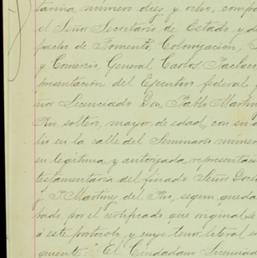 tavria, número diez y ocho, compo
el Señor Secretario de Estado, y de
pacho de Fomento, Colonización,
y Comercio General Carlos Pacheco
presentación del Ejecutivo federal y
nor Licenciado Don Pablo Martin
Rio soltero, mayor de edad, con su do
lio en la calle del Seminario número
en legítima y autorizada representaci
testamentaria del finado Señor Doct
J. P. Martinez del Rio, segun queda
bado, por el certificado que original se
á este protocolo, y cuyo tenor literal es
guiente: El Ciudadano Licenciado